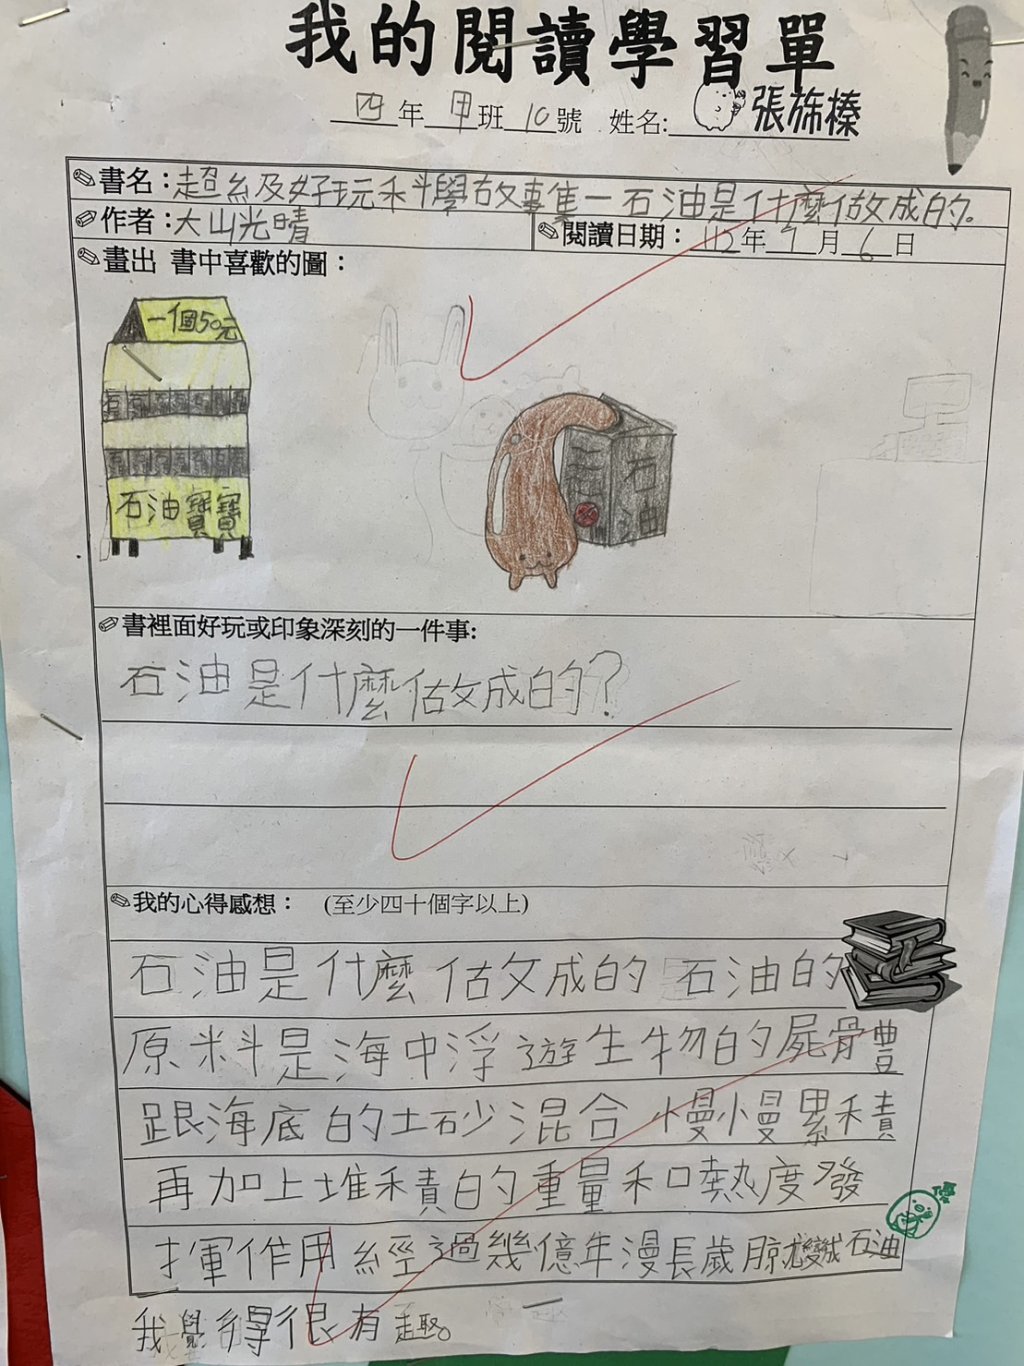 我的閱讀學習單
四年甲班10號 姓名:張旆榛
書名:超級好玩科學故事集－石油是什麼做成的。
作者:大山光晴 閱讀日期:112年7月6日
畫出 書中喜歡的圖:
一個50元
石油寶寶
石油
書裡面好玩或印象深刻的一件事:
石油是什麼做成的?
我的心得感想: (至少四十個字以上)
石油是什麼做成的 石油的
原料是海中浮遊生物的屍體
跟海底的土砂混合 慢慢累積
再加上堆積的重量和熱度發
揮作用 經過幾億年漫長歲月就變成石油
我覺得很有趣。
優